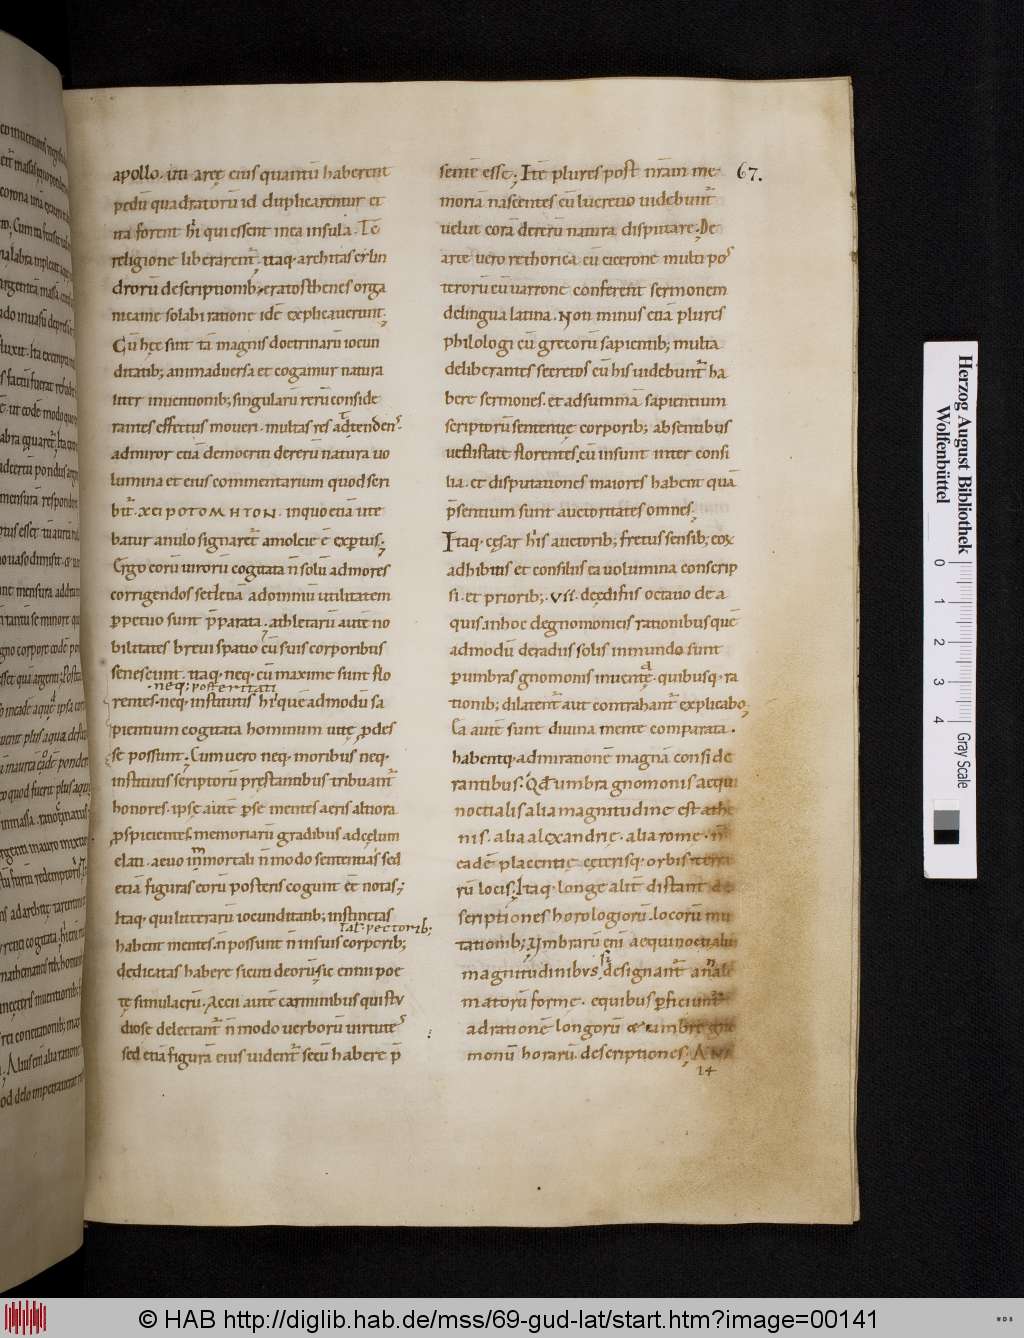 apollo. uti aręę eius quantū haberent
pedū quadratorū id duplicarentur et
ita forent hi qui essent inea insula. Tē
religione liberarent᷑. itaq· architas cylin
drorū descriptionib; eratosthenes orga
nicame solabi ratione idē explicauerunt.
Cū hęc sint tā magnis doctrinarū iocun
ditatib; animaduersa et cogamur natura
liter inuentionib; singularū rerū conside
rantes effectus moueri. multas res adtenden᷑.
admiror etiā democriti dererū natura uo
lumina et eius commentarium quod scri
bit᷑. χειροτομητον. inquo etiā ute
batur anulo signaret᷑ amolcie ē exptus.
Ergo eorū uirorū cogitata ñ solū admores
corrigendos sed etiā adomniū utilitatem
ꝑpetuo sunt p̄parata. athletarū autē no
bilitates breui spatio cū suis corporibus
senescunt. itaq· neq· cū maxime sunt flo
·neq; posteritati
rentes. neq· institutis hi quē admodū sa
pientium cogitata hominum uitę p̱des
se possunt. Cum uero neq· moribus neq·
institutis scriptorū pręstantibus tribuant᷑
honores. ipsę autē ꝑse mentes aeris altiora
p̱spicientes. memoriarū gradibus adcęlum
elati. aeuo inmortali ñ modo sententias sed
etiā figuras eorū posteris cogunt eē notas;
Itaq· qui litterarū iocunditatib; instinctas
ł pectorib;
habent mentes. ñ possunt ñ insuis corporib;
dedicatas habere sicuti deorū. sic ennii poe
tę simulacrū. Accii autē carminibus qui stu
diose delectant᷑ ñ modo uerborū uirtutes
sed etiā figurā eius uident᷑ secū habere p̄
sentē esse; Itē plures post nr̄am me
67.
moriā nascentes cū lucretio uidebunt᷑
uelut corā dererū natura disputare. De
arte uero rethorica cū cicerone multi pos
terorū cū uarrone conferent sermonem
delingua latina. Non minus etiā plures
philologi cū grecorū sapientib; multa
deliberantes secretos cū his uidebunt᷑ ha
bere sermones. et adsummā sapientium
scriptorū sententię corporib; absentibus
uetustate florentes. cū insunt inter consi
lia. et disputationes maiores habent quā
p̄sentium sunt auctoritates omnes.
Itaq· cęsar his auctorib; fretus sensib; eoꝝ
adhibitis et consiliis ea uolumina conscrip
si. et priorib; vii. deędifitiis octauo de a
quis. inhoc degnomonicis rationibus quē
admodū deradiis solis inmundo sunt
ꝑ umbras gnomonis inuentę. quibusq· ra
tionib; dilatent᷑ aut contrahant᷑ explicabo.
Ea autē sunt diuina mente comparata.
habentq· admirationē magnā conside
rantibus. Qđ umbra gnomonis aequi
noctialis alia magnitudine est athe
nis. alia alexandrię. alia rome. ñ
eadē placentię cęterisq· orbis terra
rū locis. Itaq· longe alit̄ distant de
scriptiones horologiorū. locorū mu
tationib; Umbrarū eni aequinoctialiū
magnitudinibus designant᷑ analē
matorū forme. equibus ꝑficiunt᷑
adrationē longorū et umbrę gno
monū horarū descriptiones. Ana
14
Herzog August Bibliothek
Wolfenbüttel
0 1 2 3 4
Gray Scale
© HAB http://diglib.hab.de/mss/69-gud-lat/start.htm?image=00141